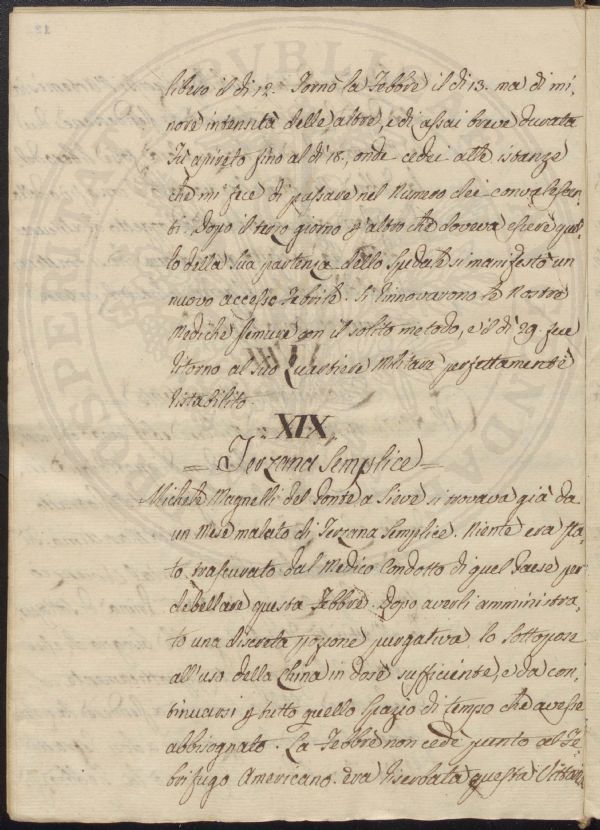 libero il dì 12. Tornò la Febbre il dì 13. ma di mi-
nore intensità delle altre, e di assai breve durata
Fù apireto fino al dì 18, onde cedei alle istanze
che mi fece di passare nel Numero dei convalescen-
ti. Dopo il terzo giorno altro che doveva essere quel-
lo della sua partenza dello Spedale si manifestò un
nuovo accesso Febrile. Si rinnovarono le Nostre
Mediche premure con il solito metodo, e il dì 29. fece
ritorno al suo Quartiere Militare perfettamente
ristabilito.
XIX
= Terzana Semplice =
Michele Magnelli del Ponte a Sieve si trovava già da
un Mese malato di Terzana Semplice. Niente era sta-
to trascurato dal Medico Condotto di quel Paese per
debellare questa Febbre. Dopo averli amministra-
to una discreta pozione purgativa lo sottopose
all'uso della China in dose sufficiente, e da con-
tinuarsi p tutto quello spazio di tempo che avesse
abbisognato. La Febbre non cedè punto al Fe-
brifugo Americano. era riserbata questa Vittori